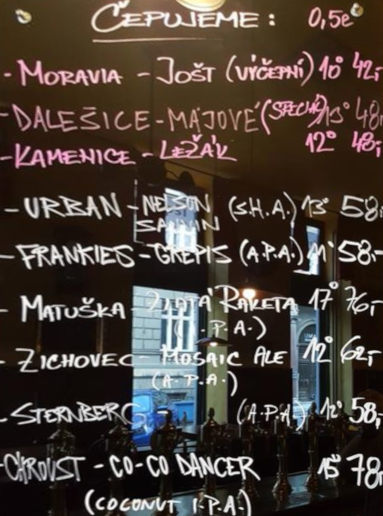 ČEPUJEME: 0,5ℓ
- MORAVIA - JOŠT (VÝČEPNÍ) 10° 42,-
- DALEŠICE - MÁJOVÉ (SPECIÁL) 13° 48,-
- KAMENICE - LEŽÁK 12° 48,-
- URBAN - NELSON (S.H.A.) 13° 58,-
SAUVIN
- FRANKIES - GREPIS (A.P.A.) 11° 58,-
- MATUŠKA - ZLATÁ RAKETA 17° 76,-
(I.P.A.)
- ZICHOVEC - MOSAIC ALE 12° 62,-
(A.P.A.)
- STERNBERG (A.P.A) 12° 58,-
- CHROUST - CO-CO DANCER 15° 78,-
(COCONUT I.P.A.)